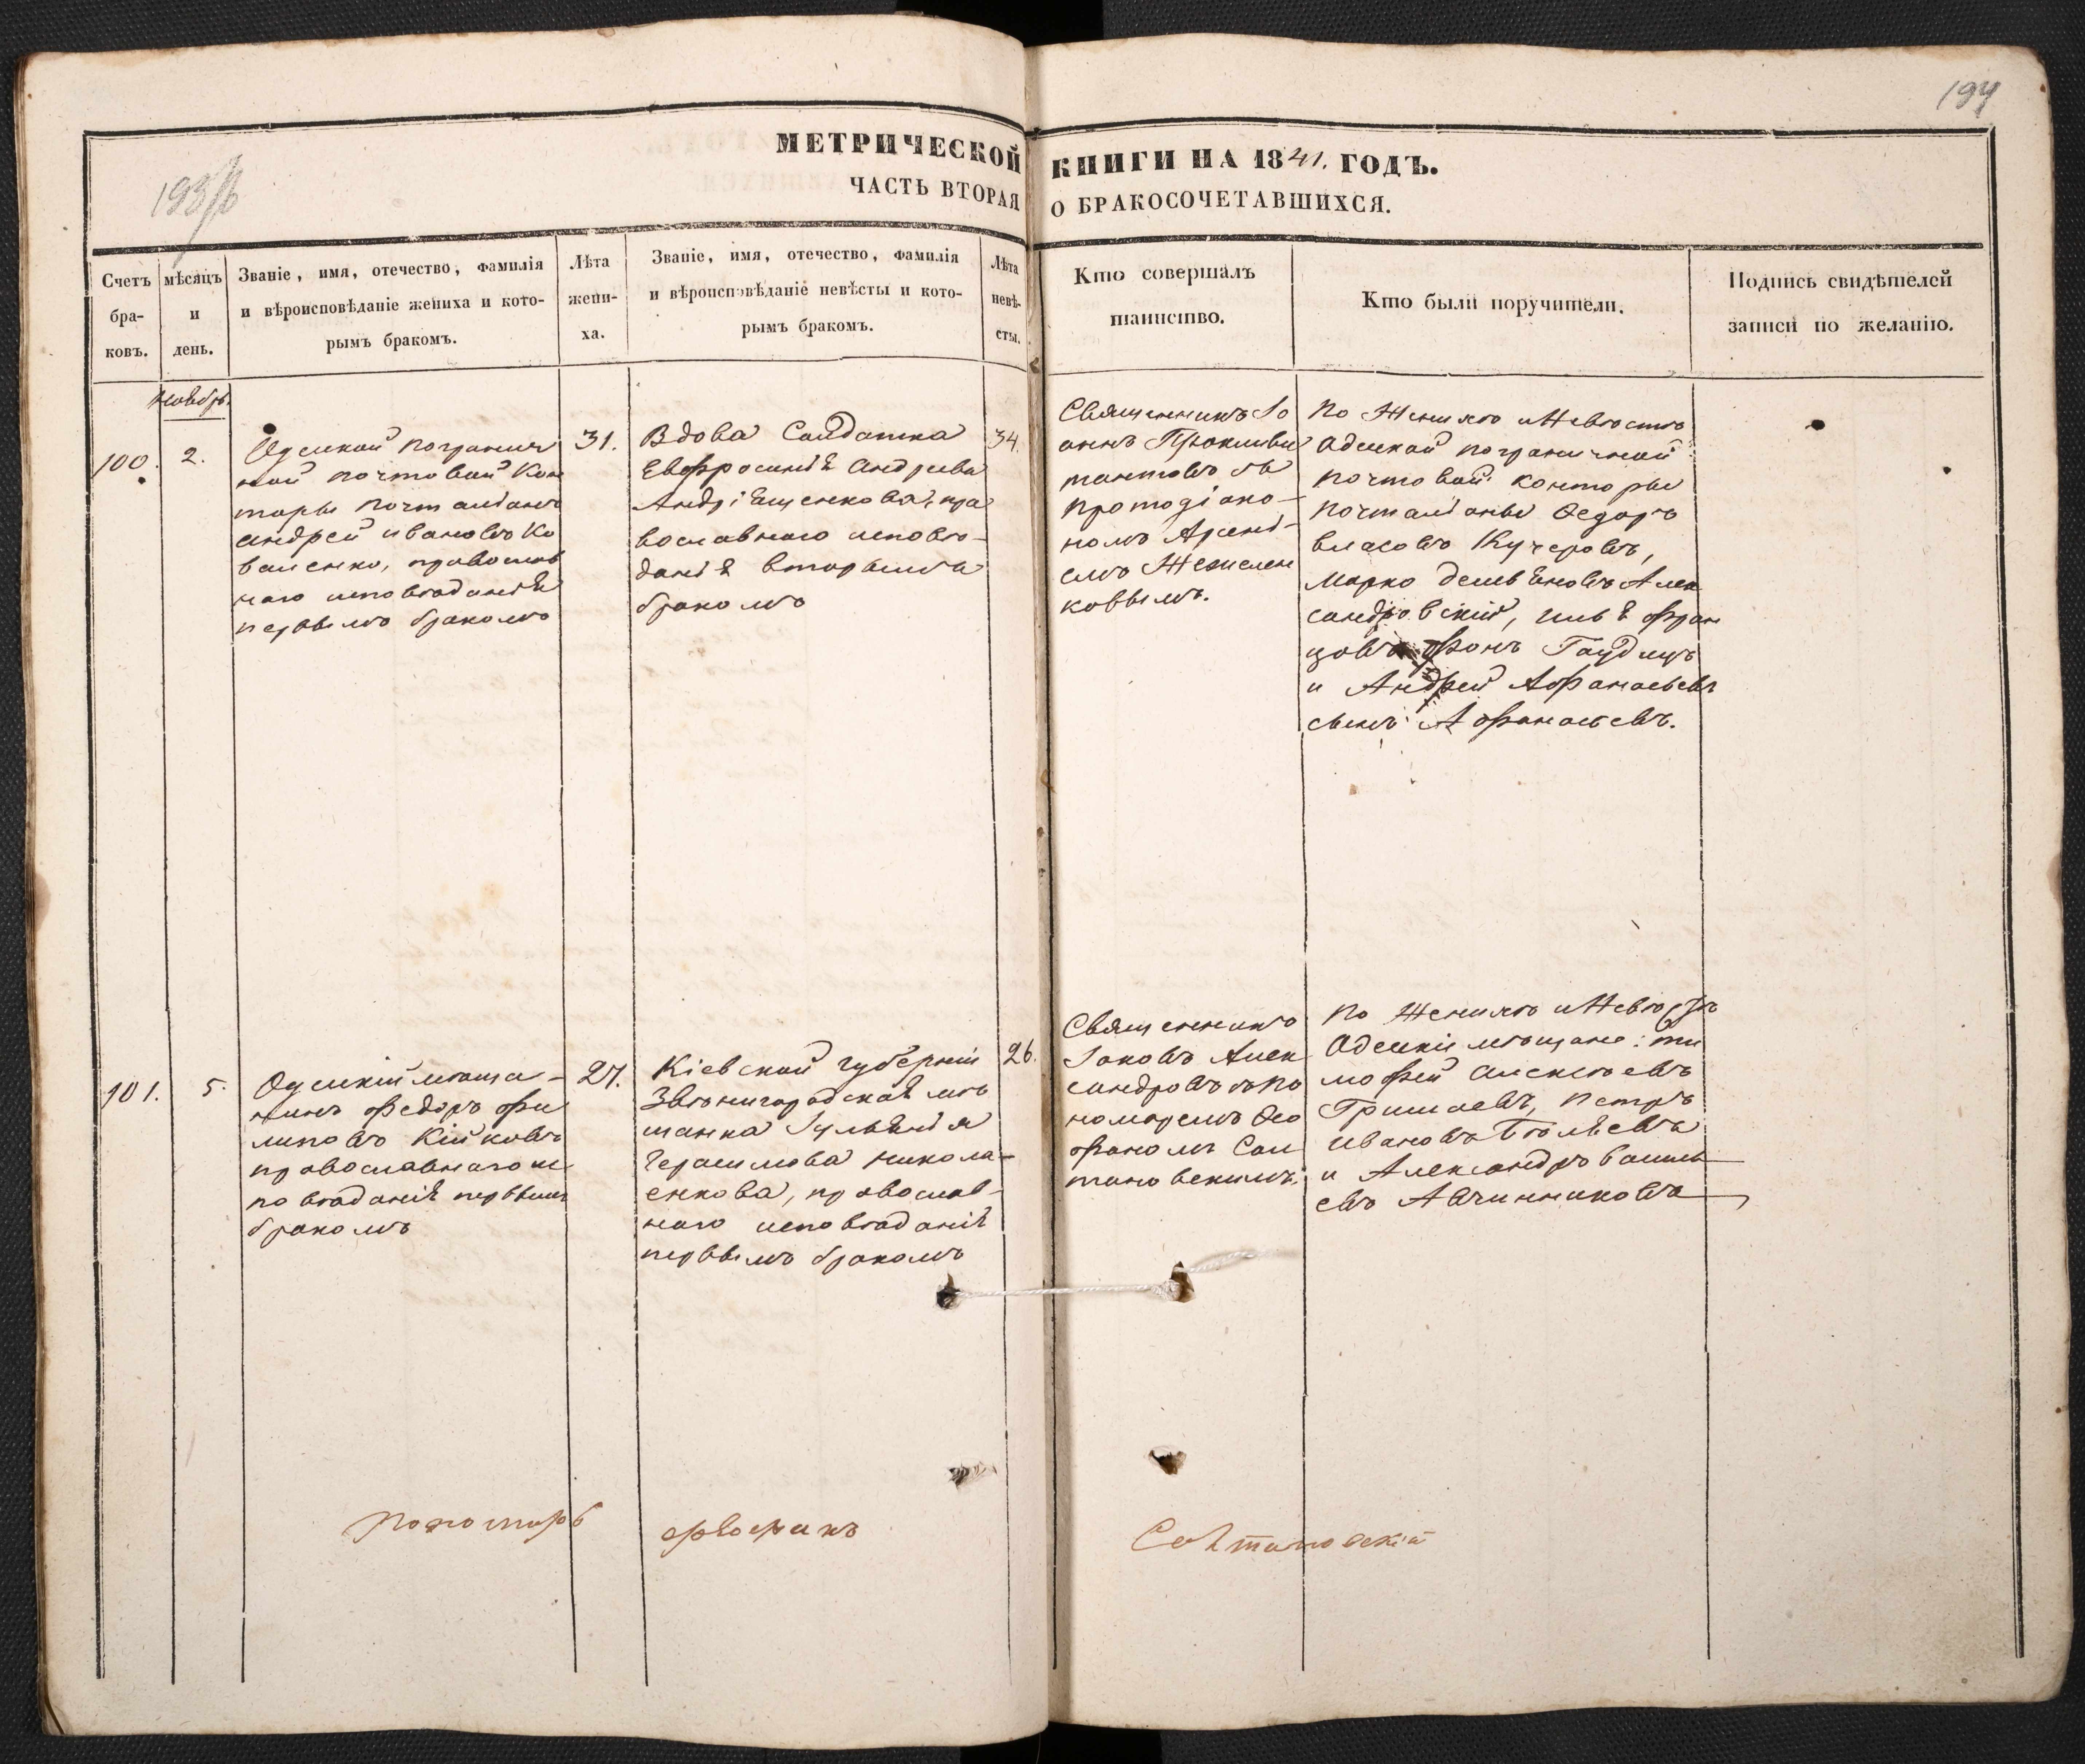 194
193/об
МЕТРИЧЕСКОЙ КНИГИ НА 1841. ГОДЪ.
ЧАСТЬ ВТОРАЯ О БРАКОСОЧЕТАВШИХСЯ.
Счетъ
бра-
ковъ.
мѣсяцъ
и
день.
Званіе, имя, отечество, фамилія
и вѣроисповѣданіе жениха и кото-
рымъ бракомъ.
Лѣта
жени-
ха.
Званіе, имя, отечество, фамилія
и вѣроисповѣданіе невѣсты и кото-
рымъ бракомъ.
Лѣта
невѣ-
сты.
Кто совершалъ
таинство.
Кто были поручители.
Подпись свидѣтелей
записи по желанію.
Ноябрь.
100.
2.
Одеской погранич
ной почтовой Кон
торы почталіонъ
Андрей Ивановъ Ко
валенко, православ
наго исповѣданія
первымъ бракомъ
31.
Вдова Солдатка
Евфросинія Андреева
Андріященкова, пра
вославнаго исповѣ-
данія вторымъ
бракомъ
34.
Священникъ Іо
аннъ Прокливи
тантовъ съ
протодіако-
номъ Арсені-
емъ Жежелен
ковымъ.
По Женихѣ и Невѣстѣ
Одеской пограничной
почтовой конторы
почталіоны Федоръ
Власовъ Кучеровъ,
Марко Демьяновъ Алек
сандровскій, Илья Фран
цовъ фонъ Гаудицъ
и Андрей Афанасьевъ
сынъ Афанасьевъ.
101.
5.
Одескій мѣща-
нинъ Федоръ Фи
липовъ Кійковъ
православнаго ис
повѣданія первымъ
бракомъ
27.
Кіевской губерніи
Звѣнигородская мѣ
щанка Іульянія
Герасимова Никола-
енкова, православ-
наго исповѣданія
первымъ бракомъ
26.
Священникъ
Іаковъ Алек
сандровъ съ по
номаремъ Фео
фаномъ Сал
тановскимъ.
По Женихѣ и Невѣстѣ
Одескіе мѣщане: Ти
мофей Алексѣевъ
Гришаевъ, Петръ
Ивановъ Бѣляевъ
и Александръ Василь
евъ Авчинниковъ
Пономарь Феофанъ Салтановскій